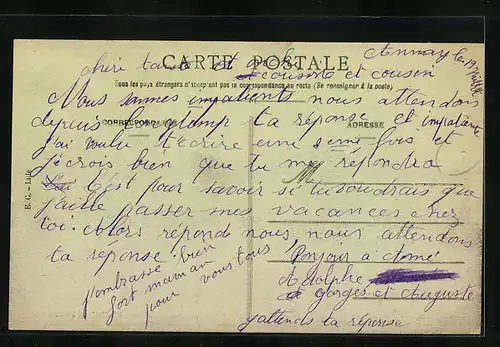 CARTE POSTALE
Annay le 19
chéri tante et oncle
cousine et cousin
Tous les pays étrangers n'acceptent pas la correspondance au recto (Se renseigner à la poste)
Nous sommes impatients nous attendons
CORRESPONDANCE
ADRESSE
depuis longtemp ta réponse et impatiente
j'ai voulu t'écrire une 2eme fois et
je crois bien que tu me repondra
C'est pour savoir si tu voudrais que
j'aille passer mes vacances chez
toi. Alors répond nous, nous attendons
ta réponse.
Bonjour à Aimé
Adolphe
et gorges et Auguste
j'attends ta réponse
j'embrasse bien
fort maman
pour vous tous
E. C. - Lille